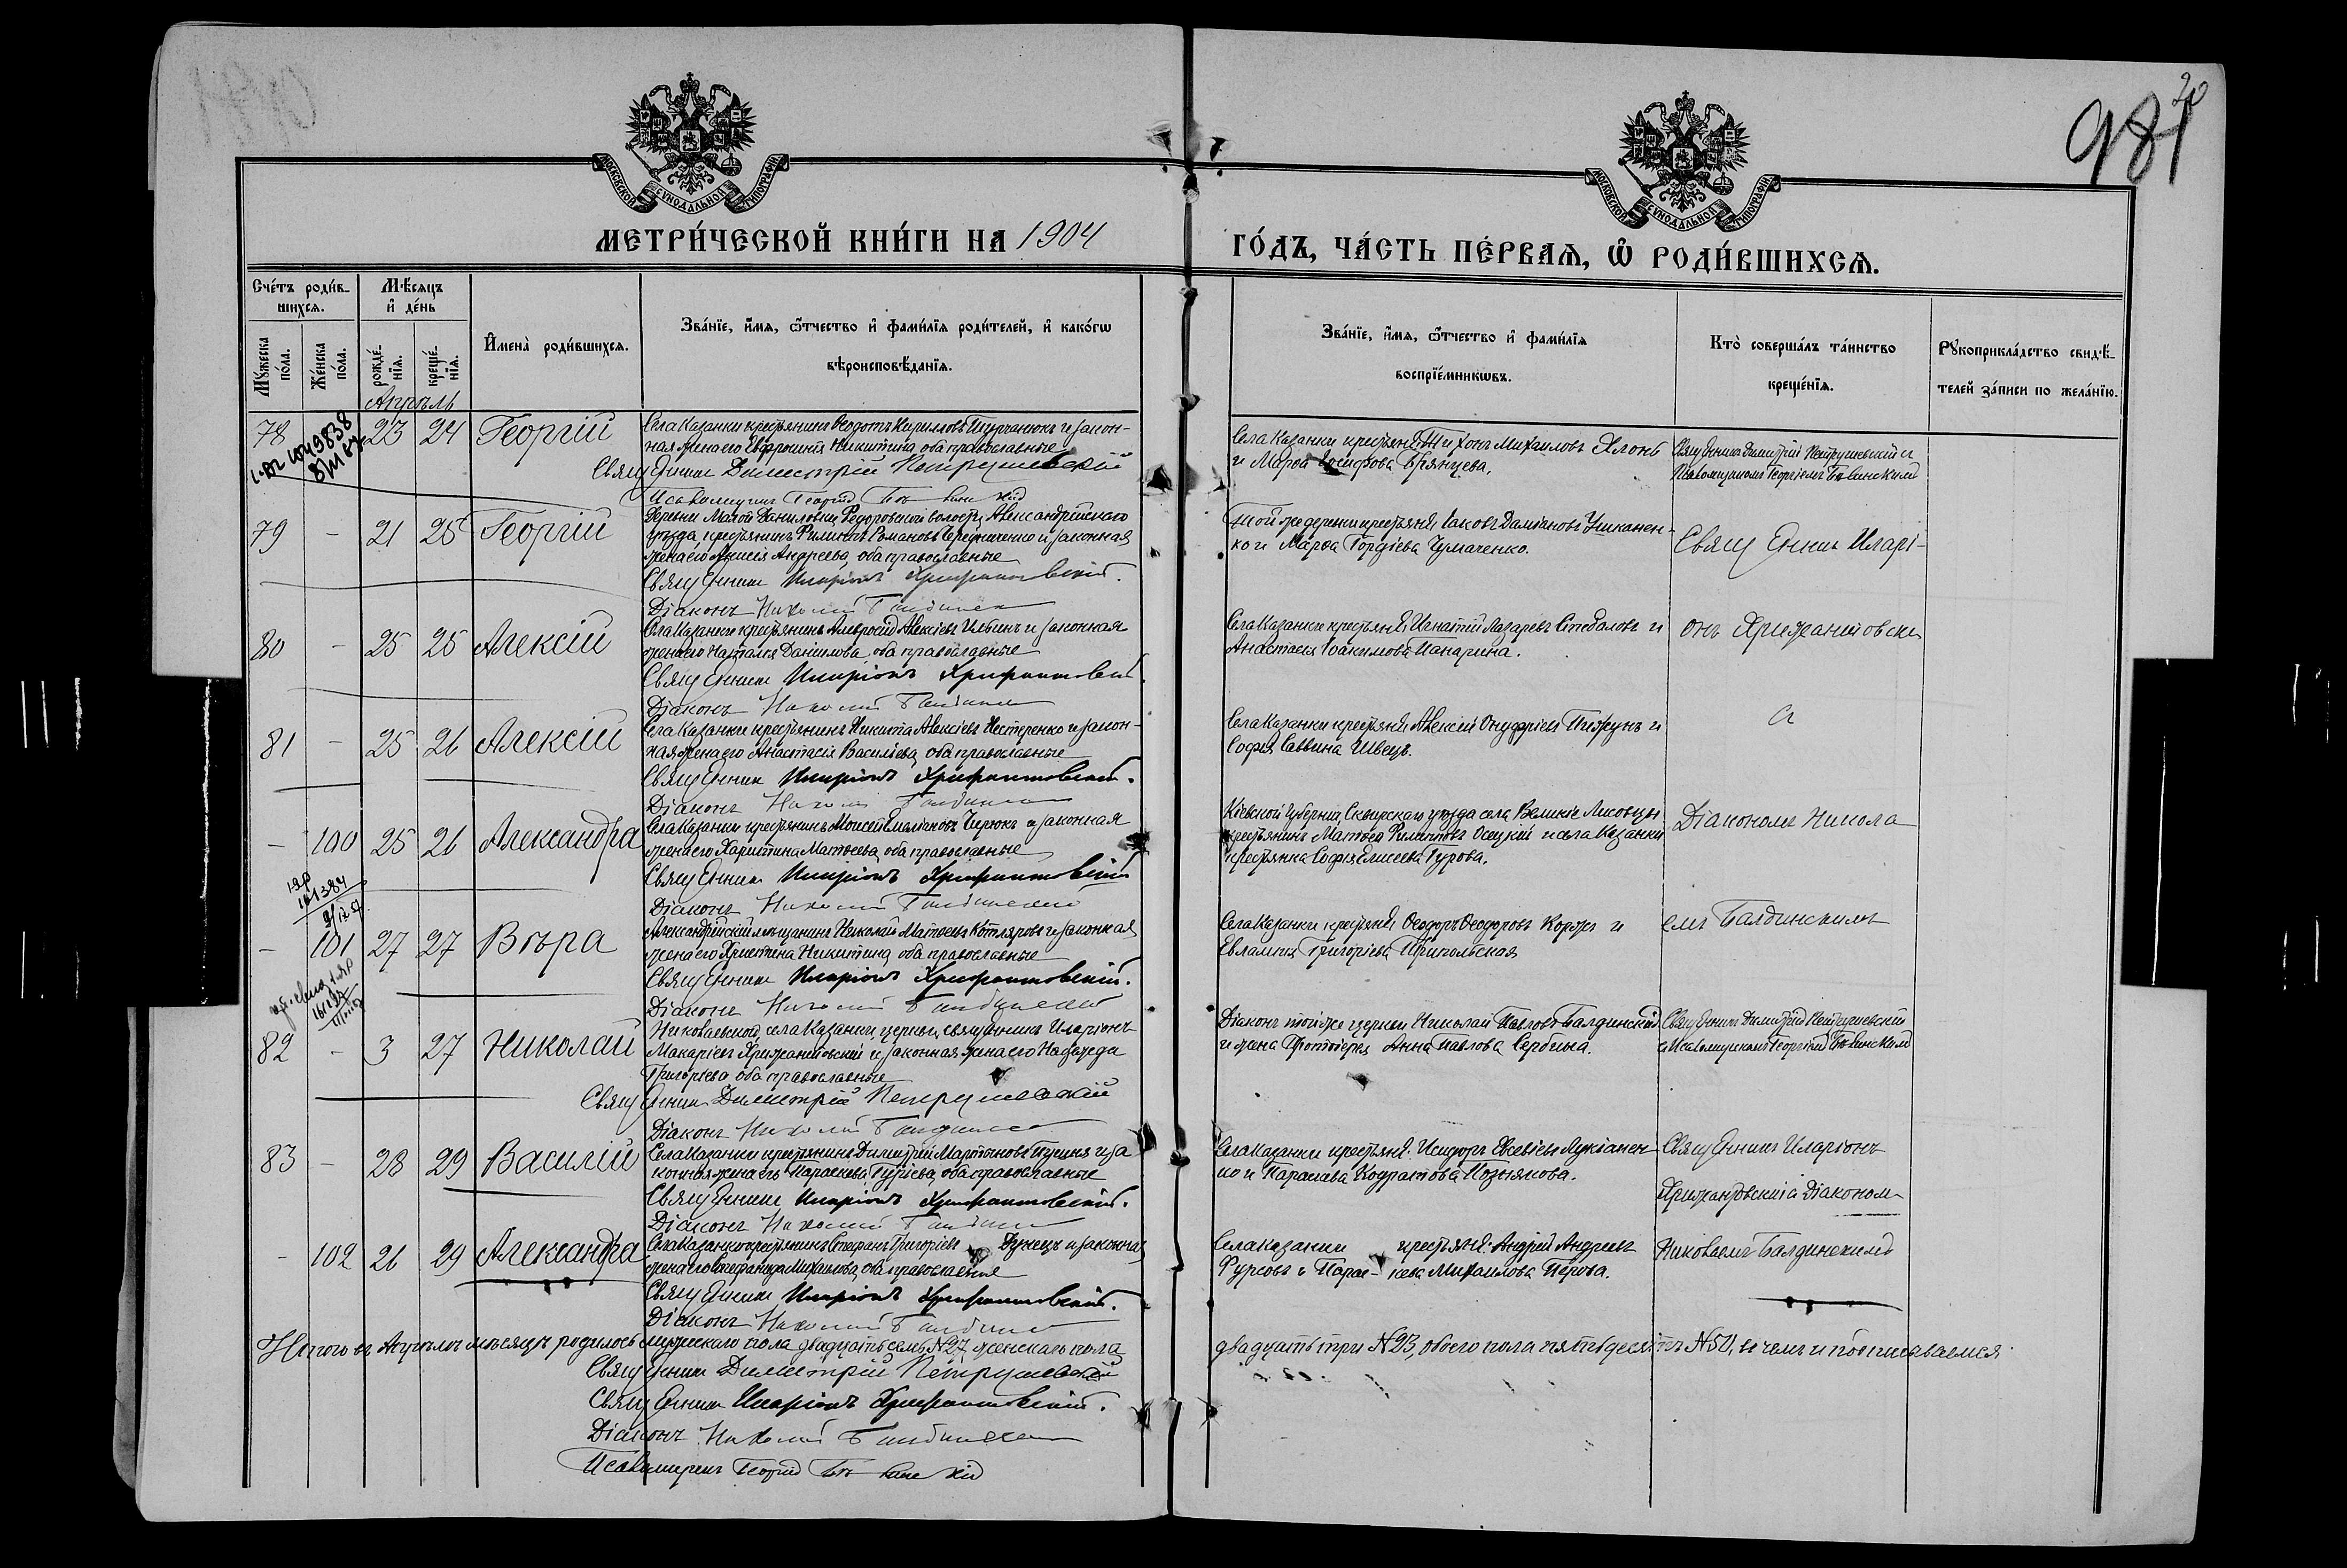 981
20
МОСКОВСКОЙ СѴНОДАЛЬНОЙ ТИПОГРАФІИ
МОСКОВСКОЙ СѴНОДАЛЬНОЙ ТИПОГРАФІИ
МЕТРИ́ЧЕСКОЙ КНИ́ГИ НА 1904
ГО́ДЪ, ЧА́СТЬ ПЕ́РВАѦ, Ѽ РОДИ́ВШИХСѦ.
Сче́тъ роди́в-
шихсѧ.
Мꙋ́жеска по́ла.
Же́нска по́ла.
Мѣ́сѧцъ
и҆ де́нь
рожде́-нїѧ.
креще́-нїѧ.
И҆мена̀ роди́вшихсѧ.
Зва́нїе, и҆́мѧ, ѻ҆́тчество и҆ фами́лїѧ роди́телей, и҆ како́гѡ
вѣроисповѣ́данїѧ.
Зва́нїе, и҆́мѧ, ѻ҆́тчество и҆ фами́лїѧ
воспрїе́мникѡвъ.
Кто̀ соверша́лъ та́инство
креще́нїѧ.
Рꙋкоприкла́дство свидѣ́-
телей за́писи по жела́нїю.
Апрѣль
78 23 24 Георгій
Села Казанки крестьянинъ Ѳеодотъ Кирилловъ и закон-
ная жена его Евфросинія Никитина, оба православные
Священникъ Димитрій Петрушевскій
Псаломщикъ Георгій
Села Казанки крестьян. Тихонъ Михаиловъ Ялонь
и Марѳа Іосифова Брянцева.
Священникъ Димитрій Петрушевскій и
Псаломщикомъ Георгіемъ
79 - 21 25 Георгій
Деревни Малой Даниловки, Федоровской волости, Александрійскаго
уѣзда, крестьянинъ Филиппъ Романовъ Чередниченко и законная
жена его Анисія Андреева, оба православные
Священникъ Иларіонъ Хрисанповскій.
Діаконъ Николай Балдинскій
Той же деревни крестьян. Іаковъ Даміановъ Ушканен-
ко и Марѳа Гордіева Чумаченко.
Священникъ Иларі-
80 - 25 25 Алексій
Села Казанки крестьянинъ Амвросій Алексіевъ Ильинъ и законная
жена его Наталія Даніилова, оба православные
Священникъ Иларіонъ
Діаконъ Николай Балдинскій
Села Казанки крестьян. Игнатій Лазаревъ и
Анастасія Іоакимова Панарина.
онъ
81 - 25 26 Алексій
Села Казанки крестьянинъ Никита Алексіевъ Нестеренко и закон-
ная жена его Анастасія Василіева, оба православные
Священникъ Иларіонъ
Діаконъ Николай Балдинскій
Села Казанки крестьян. Алексій Онуфріевъ и
Софія Саввина Швецъ.
и
- 100 25 26 Александра
Села Казанки крестьянинъ Моисей Емиліановъ и законная
жена его Харитина Матѳеева, оба православные
Священникъ Иларіонъ
Діаконъ Николай Балдинскій
Кіевской губерніи, Сквирскаго уѣзда села Великіе Лисовцы
крестьянинъ Матѳей Филипповъ Осецкій и села Казанки
крестьянка Софія Елисеева Гурова.
Діакономъ Никола
- 101 27 27 Вѣра
Александрійскій мѣщанинъ Николай Матѳеевъ Котляровъ и законная
жена его Христина Никитина, оба православные
Священникъ Иларіонъ
Діаконъ Николай Балдинскій
Села Казанки крестьян. Ѳеодоръ Ѳеодоровъ Коржъ и
Евлампія Григоріева Припольская
емъ Балдинскимъ
82 - 3 27 Николай
Николаевской, села Казанки, церкви, священникъ Иларіонъ
Макаріевъ и законная жена его Надежда
Григоріева оба православные
Священникъ Димитрій Петрушевскій
Діаконъ Николай Балдинскій
Діаконъ той же церкви Николай Павловъ Балдинскій
и жена Протоіерея Анна Павлова Сербина.
Священникъ Димитрій Петрушевскій
и Псаломщикомъ Георгіемъ
83 - 28 29 Василій
Села Казанки крестьянинъ Димитрій Мартыновъ и за
конная жена его Параскева Гуріева, оба православные
Священникъ Иларіонъ
Діаконъ Николай Балдинскій
Села Казанки крестьян. Исидоръ Евсевіевъ Лукіанен-
ко и Параскева Кодратова Познякова.
Священникъ Иларіонъ
и Діаконом-
- 102 26 29 Александра
Села Казанки крестьянинъ Стефанъ Григоріевъ и законная
жена его Стефанида Михаилова, оба православные
Священникъ Иларіонъ
Діаконъ Николай Балдинскій
Села Казанки крестьян. Андрей Андреевъ
Фурсовъ и Парас-кева Михаилова Перова.
Николаемъ Балдинскимъ
Итого въ Апрѣлѣ мѣсяцѣ родилось мужескаго пола двадцать семь №27, женскаго пола
двадцать три №23, обоего пола пятьдесятъ №50, въ чемъ и подписываемся.
Священникъ Димитрій Петрушевскій
Священникъ Иларіонъ
Діаконъ Николай Балдинскій
Псаломщикъ Георгій